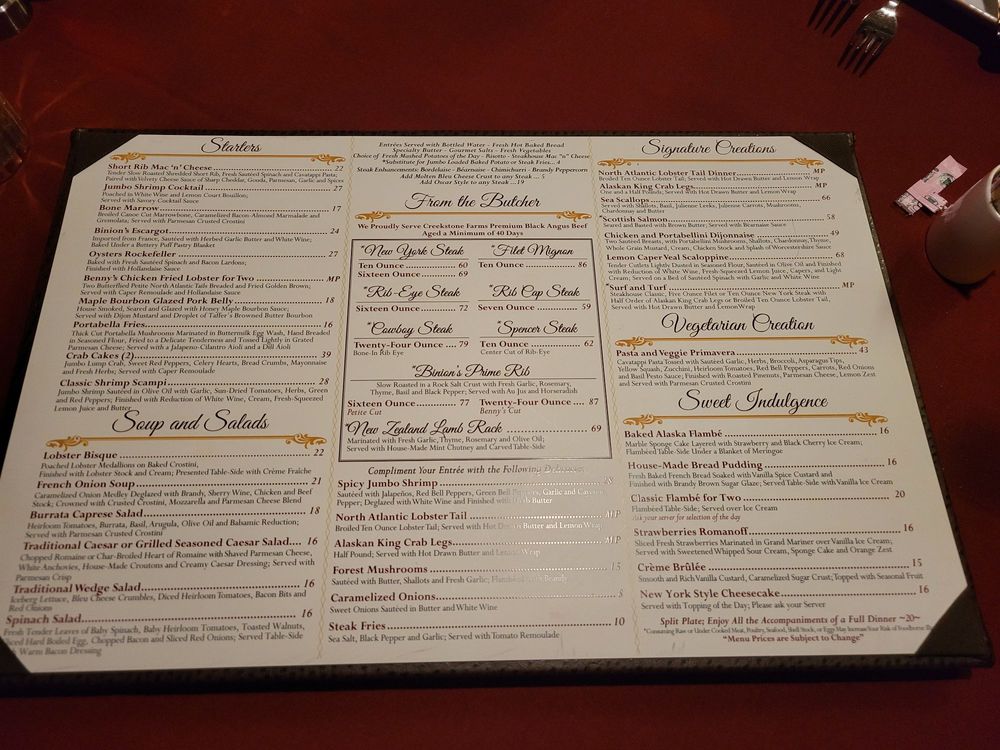 Starters
Short Rib Mac 'n' Cheese 22
Tender Slow Roasted Shredded Short Rib, Fresh Sautéed Spinach and Cavatappi Pasta;
Paired with Velvety Cheese Sauce of Sharp Cheddar, Gouda, Parmesan, Garlic and Spices
Jumbo Shrimp Cocktail 27
Poached in White Wine and Lemon Court Bouillon;
Served with Savory Cocktail Sauce
Bone Marrow 17
Broiled Canoe Cut Marrowbone, Caramelized Bacon-Almond Marmalade and
Gremolata; Served with Parmesan Crusted Crostini
Binion's Escargot 24
Imported from France, Sautéed with Herbed Garlic Butter and White Wine;
Baked Under a Buttery Puff Pastry Blanket
Oysters Rockefeller 27
Baked with Fresh Sautéed Spinach and Bacon Lardons;
Finished with Hollandaise Sauce
Benny's Chicken Fried Lobster for Two MP
Two Butterflied Petite North Atlantic Tails Breaded and Fried Golden Brown;
Served with Caper Remoulade and Hollandaise Sauce
Maple Bourbon Glazed Pork Belly 18
House Smoked, Seared and Glazed with Honey Maple Bourbon Sauce;
Served with Dijon Mustard and Droplet of Taffer's Browned Butter Bourbon
Portabella Fries 16
Thick Cut Portabella Mushrooms Marinated in Buttermilk Egg Wash, Hand Breaded
in Seasoned Flour, Fried to a Delicate Tenderness and Tossed Lightly in Grated
Parmesan Cheese; Served with a Jalapeno-Cilantro Aioli and a Dill Aioli
Crab Cakes (2) 39
Jumbo Lump Crab, Sweet Red Peppers, Celery Hearts, Bread Crumbs, Mayonnaise
and Fresh Herbs; Served with Caper Remoulade
Classic Shrimp Scampi 28
Jumbo Shrimp Sautéed in Olive Oil with Garlic, Sun-Dried Tomatoes, Herbs, Green
and Red Peppers; Finished with Reduction of White Wine, Cream, Fresh-Squeezed
Lemon Juice and Butter
Soup and Salads
Lobster Bisque 22
Poached Lobster Medallions on Baked Crostini,
Finished with Lobster Stock and Cream; Presented Table-Side with Crème Fraîche
French Onion Soup 21
Caramelized Onion Medley Deglazed with Brandy, Sherry Wine, Chicken and Beef
Stock; Crowned with Crusted Crostini, Mozzarella and Parmesan Cheese Blend
Burrata Caprese Salad 18
Heirloom Tomatoes, Burrata, Basil, Arugula, Olive Oil and Balsamic Reduction;
Served with Parmesan Crusted Crostini
Traditional Caesar or Grilled Seasoned Caesar Salad.... 16
Chopped Romaine or Char-Broiled Heart of Romaine with Shaved Parmesan Cheese,
White Anchovies, House-Made Croutons and Creamy Caesar Dressing; Served with
Parmesan Crisp
Traditional Wedge Salad 16
Iceberg Lettuce, Bleu Cheese Crumbles, Diced Heirloom Tomatoes, Bacon Bits and
Red Onions
Spinach Salad 16
Fresh Tender Leaves of Baby Spinach, Baby Heirloom Tomatoes, Toasted Walnuts,
Sliced Hard Boiled Egg, Chopped Bacon and Sliced Red Onions; Served Table-Side
Warm Bacon Dressing
Entrées Served with Bottled Water - Fresh Hot Baked Bread
Specialty Butter - Gourmet Salts - Fresh Vegetables
Choice of Fresh Mashed Potatoes of the Day - Risotto - Steakhouse Mac "n" Cheese
Substitute for Jumbo Loaded Baked Potato or Steak Fries... 4
Steak Enhancements: Bordelaise - Béarnaise - Chimichurri - Brandy Peppercorn
Add Molten Bleu Cheese Crust to any Steak ... 5
Add Oscar Style to any Steak ...19
From the Butcher
We Proudly Serve Creekstone Farms Premium Black Angus Beef
Aged a Minimum of 40 Days
*New York Steak
Ten Ounce 60
Sixteen Ounce 69
*Filet Mignon
Ten Ounce 86
*Rib-Eye Steak
Sixteen Ounce 72
*Rib Cap Steak
Seven Ounce 59
*Cowboy Steak
Twenty-Four Ounce 79
Bone-In Rib Eye
*Spencer Steak
Ten Ounce 62
Center Cut of Rib-Eye
*Binion's Prime Rib
Slow Roasted in a Rock Salt Crust with Fresh Garlic, Rosemary,
Thyme, Basil and Black Pepper; Served with Au Jus and Horseradish
Sixteen Ounce 77
Petite Cut
Twenty-Four Ounce 87
Benny's Cut
*New Zealand Lamb Rack 69
Marinated with Fresh Garlic, Thyme, Rosemary and Olive Oil;
Served with House-Made Mint Chutney and Carved Table-Side
Compliment Your Entrée with the Following
Spicy Jumbo Shrimp 28
Sautéed with Jalapeños, Red Bell Peppers, Green Bell Peppers, Garlic and
Pepper; Deglazed with White Wine and Finished with Fresh Butter
North Atlantic Lobster Tail MP
Broiled Ten Ounce Lobster Tail; Served with Hot Drawn Butter and Lemon Wrap
Alaskan King Crab Legs MP
Half Pound; Served with Hot Drawn Butter and Lemon Wrap
Forest Mushrooms 15
Sautéed with Butter, Shallots and Fresh Garlic; Brandy
Caramelized Onions
Sweet Onions Sautéed in Butter and White Wine
Steak Fries 10
Sea Salt, Black Pepper and Garlic; Served with Tomato Remoulade
Signature Creations
North Atlantic Lobster Tail Dinner MP
Broiled Ten Ounce Lobster Tail; Served with Hot Drawn Butter and Lemon Wrap
Alaskan King Crab Legs MP
One and a Half Pounds; Served with Hot Drawn Butter and Lemon Wrap
Sea Scallops 66
Served with Shallots, Basil, Julienne Leeks, Julienne Carrots, Mushrooms,
Chardonnay and Butter
*Scottish Salmon 58
Seared and Basted with Brown Butter; Served with Béarnaise Sauce
Chicken and Portabellini Dijonnaise 49
Two Sautéed Breasts, with Portabellini Mushrooms, Shallots, Chardonnay, Thyme,
Whole Grain Mustard, Cream, Chicken Stock and Splash of Worcestershire Sauce
Lemon Caper Veal Scaloppine 68
Tender Cutlets Lightly Dusted in Seasoned Flour, Sautéed in Olive Oil and Finished
with Reduction of White Wine, Fresh-Squeezed Lemon Juice, Capers, and Light
Cream; Served on a Bed of Sautéed Spinach with Garlic and White Wine
*Surf and Turf MP
Steakhouse Classic, Five Ounce Filet or Ten Ounce New York Steak with
Half Order of Alaskan King Crab Legs or Broiled Ten Ounce Lobster Tail,
Served with Hot Drawn Butter and Lemon Wrap
Vegetarian Creation
Pasta and Veggie Primavera 43
Cavatappi Pasta Tossed with Sautéed Garlic, Herbs, Broccoli, Asparagus Tips,
Yellow Squash, Zucchini, Heirloom Tomatoes, Red Bell Peppers, Carrots, Red Onions
and Basil Pesto Sauce; Finished with Roasted Peanuts, Parmesan Cheese, Lemon Zest
and Served with Parmesan Crusted Crostini
Sweet Indulgence
Baked Alaska Flambé 16
Marble Sponge Cake Layered with Strawberry and Black Cherry Ice Cream;
Flambéed Table-Side Under a Blanket of Meringue
House-Made Bread Pudding 16
Fresh Baked French Bread Soaked with Vanilla Spice Custard and
Finished with Brandy Brown Sugar Glaze; Served Table-Side with Vanilla Ice Cream
Classic Flambé for Two 20
Flambéed Table-Side; Served over Ice Cream
Ask your server for selection of the day
Strawberries Romanoff 16
Sliced Fresh Strawberries Marinated in Grand Marnier over Vanilla Ice Cream;
Served with Sweetened Whipped Sour Cream, Sponge Cake and Orange Zest
Crème Brûlée 15
Smooth and Rich Vanilla Custard, Caramelized Sugar Crust; Topped with Seasonal Fruit
New York Style Cheesecake 16
Served with Topping of the Day; Please ask your Server
Split Plate; Enjoy All the Accompaniments of a Full Dinner ~20~
*Consuming Raw or Under Cooked Meat, Poultry, Seafood, Shell Stock, or Eggs May Increase Your Risk of Foodborne
"Menu Prices are Subject to Change"